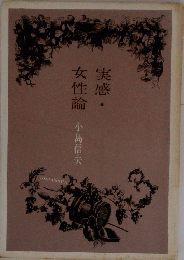 実感・
女性論
小島信夫